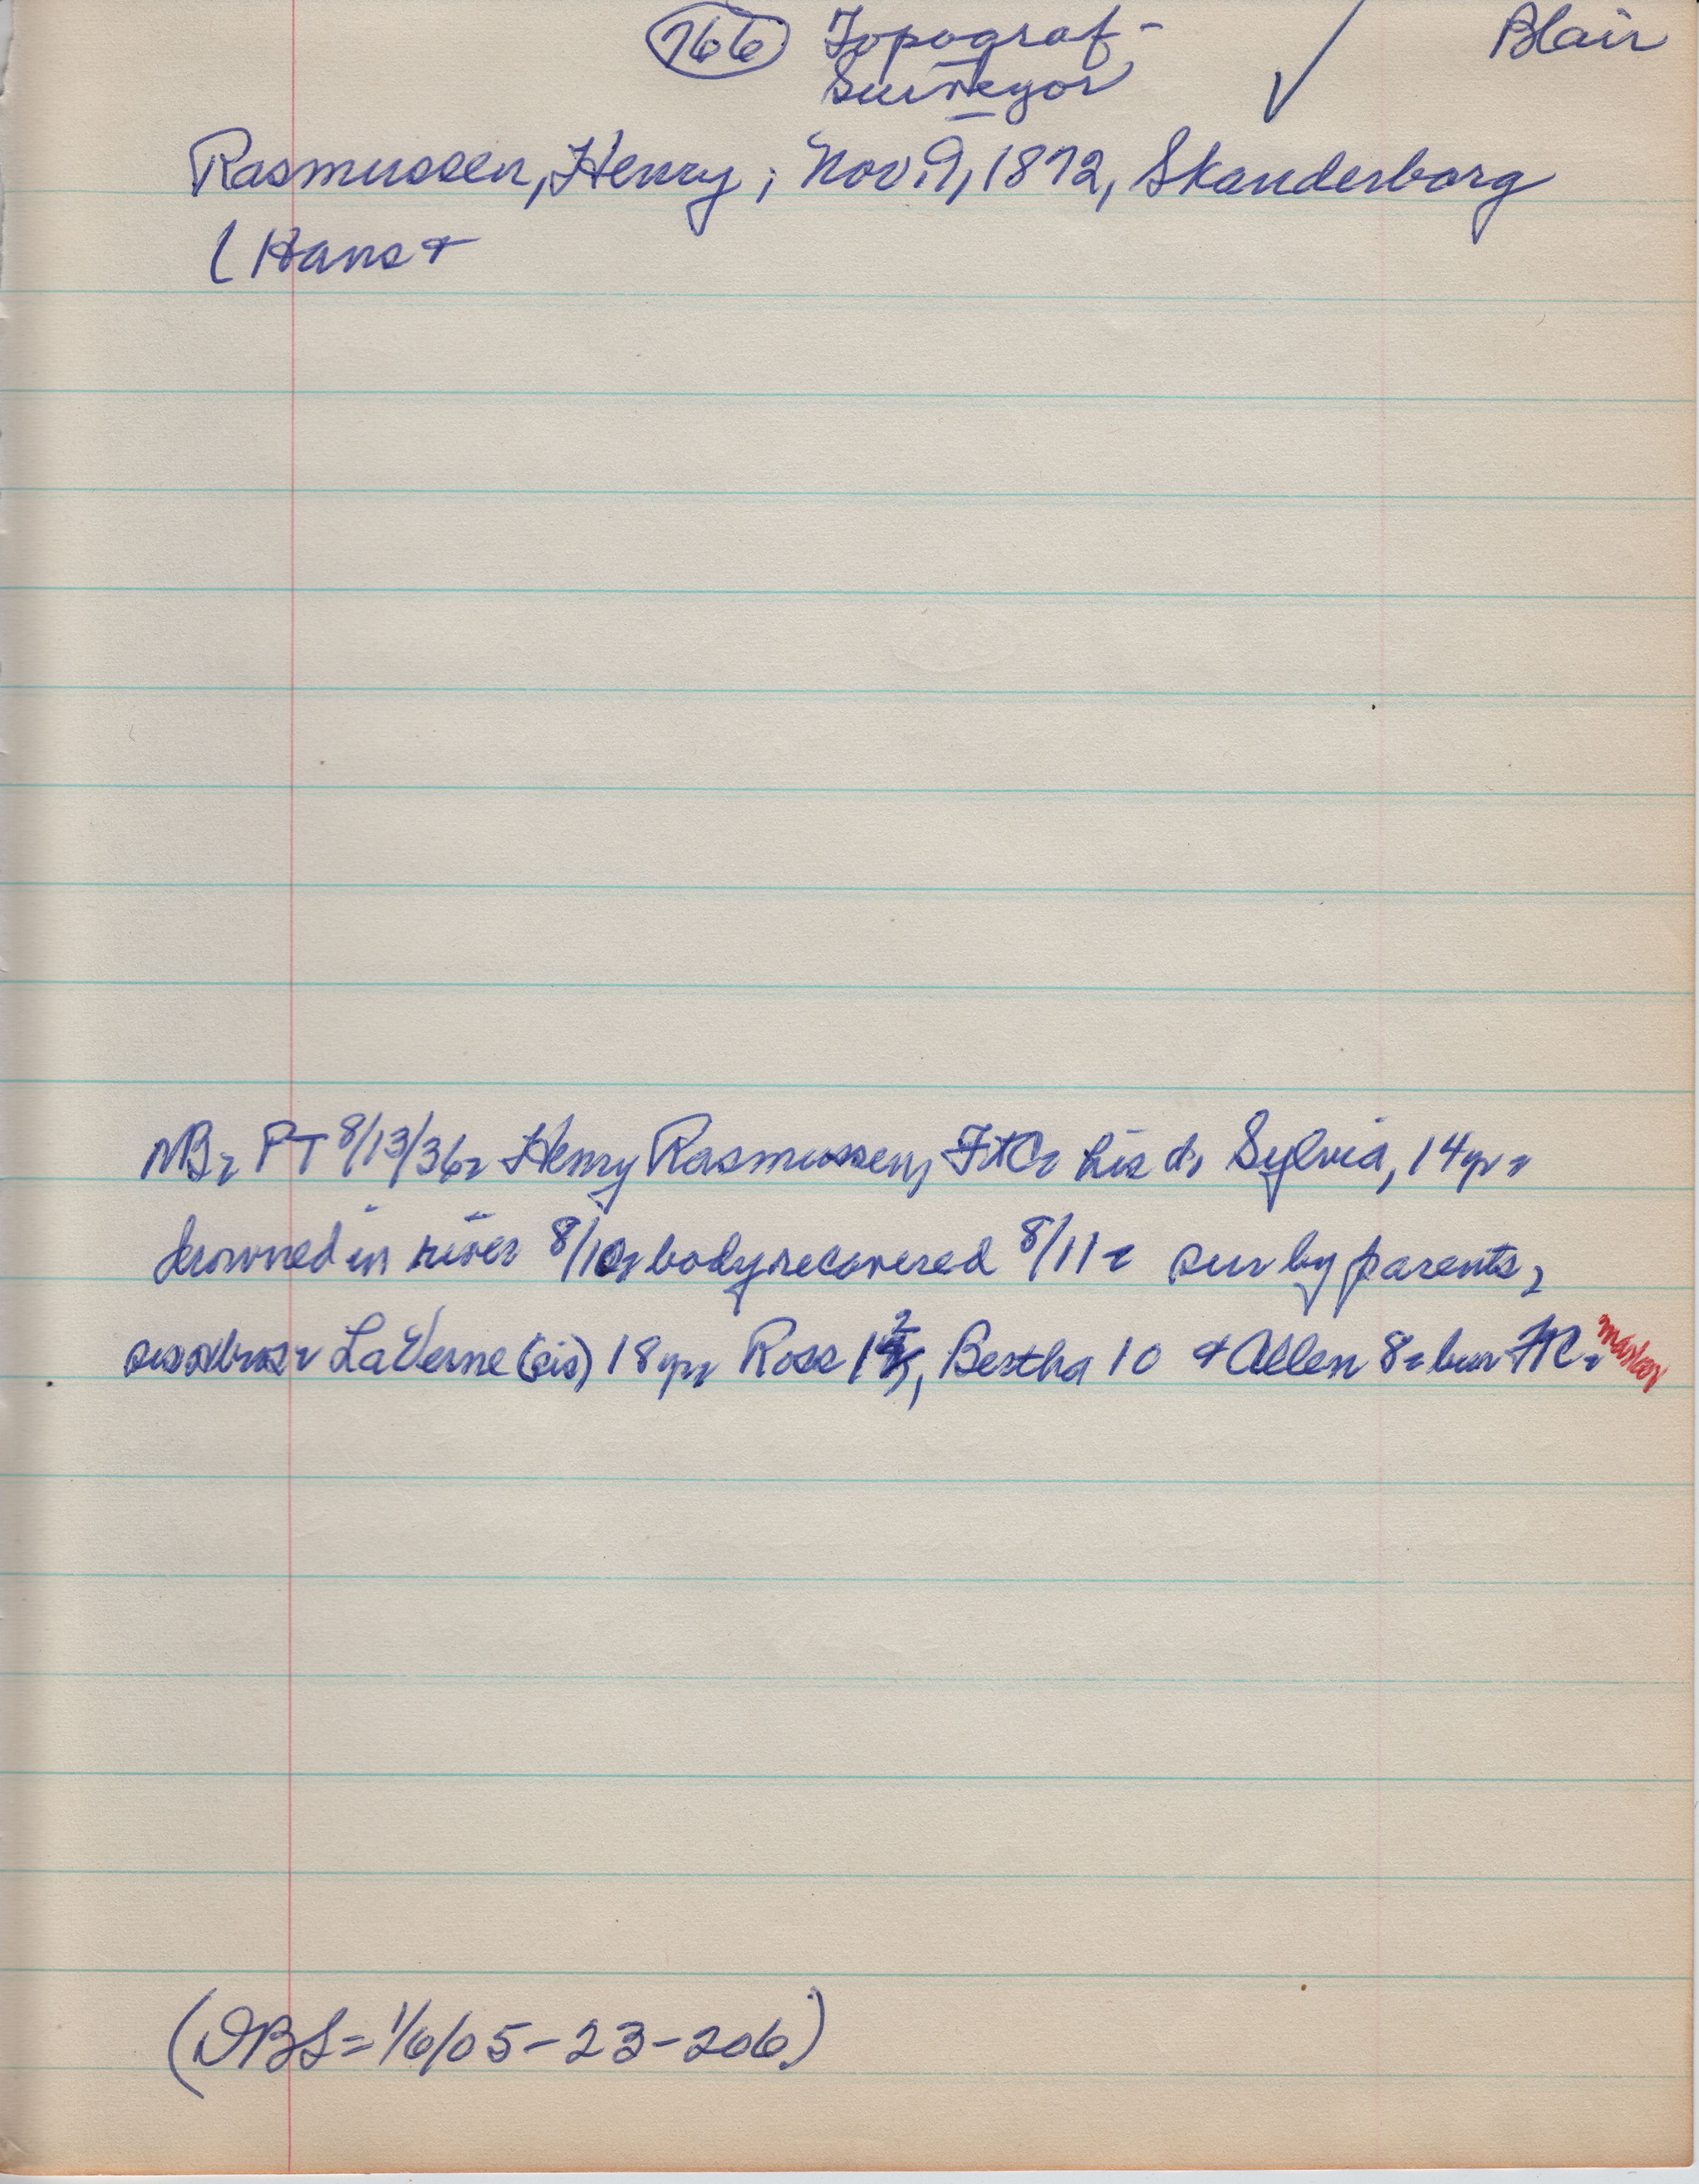 766 Topograf- ✓ Blair
Surveyor
Rasmussen, Henry; Nov. 9, 1872, Skanderborg
(Hans +
NB: PT 8/13/36: Henry Rasmussen, FtC: his d. Sylvia, 14yr:
drowned in river 8/10: body recovered 8/11: sur by parents,
sis & bros: LaVerne (sis) 18yr: Ross 12, Bertha 10 + Allen 8: bur FtC:
(DBS= 1/6/05-23-206)